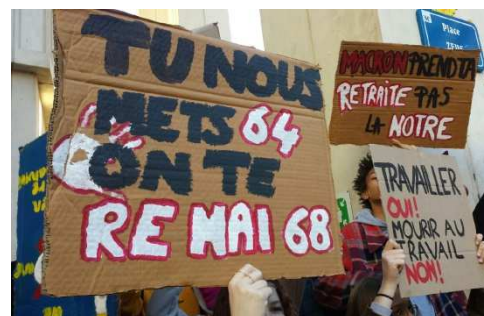 TU NOUS
METS 64
ON TE
RE MAI 68
MACRON PREND TA
RETRAITE PAS
LA NOTRE
TRAVAILLER,
OUI!
MOURIR AU
TRAVAIL
NON!
Place